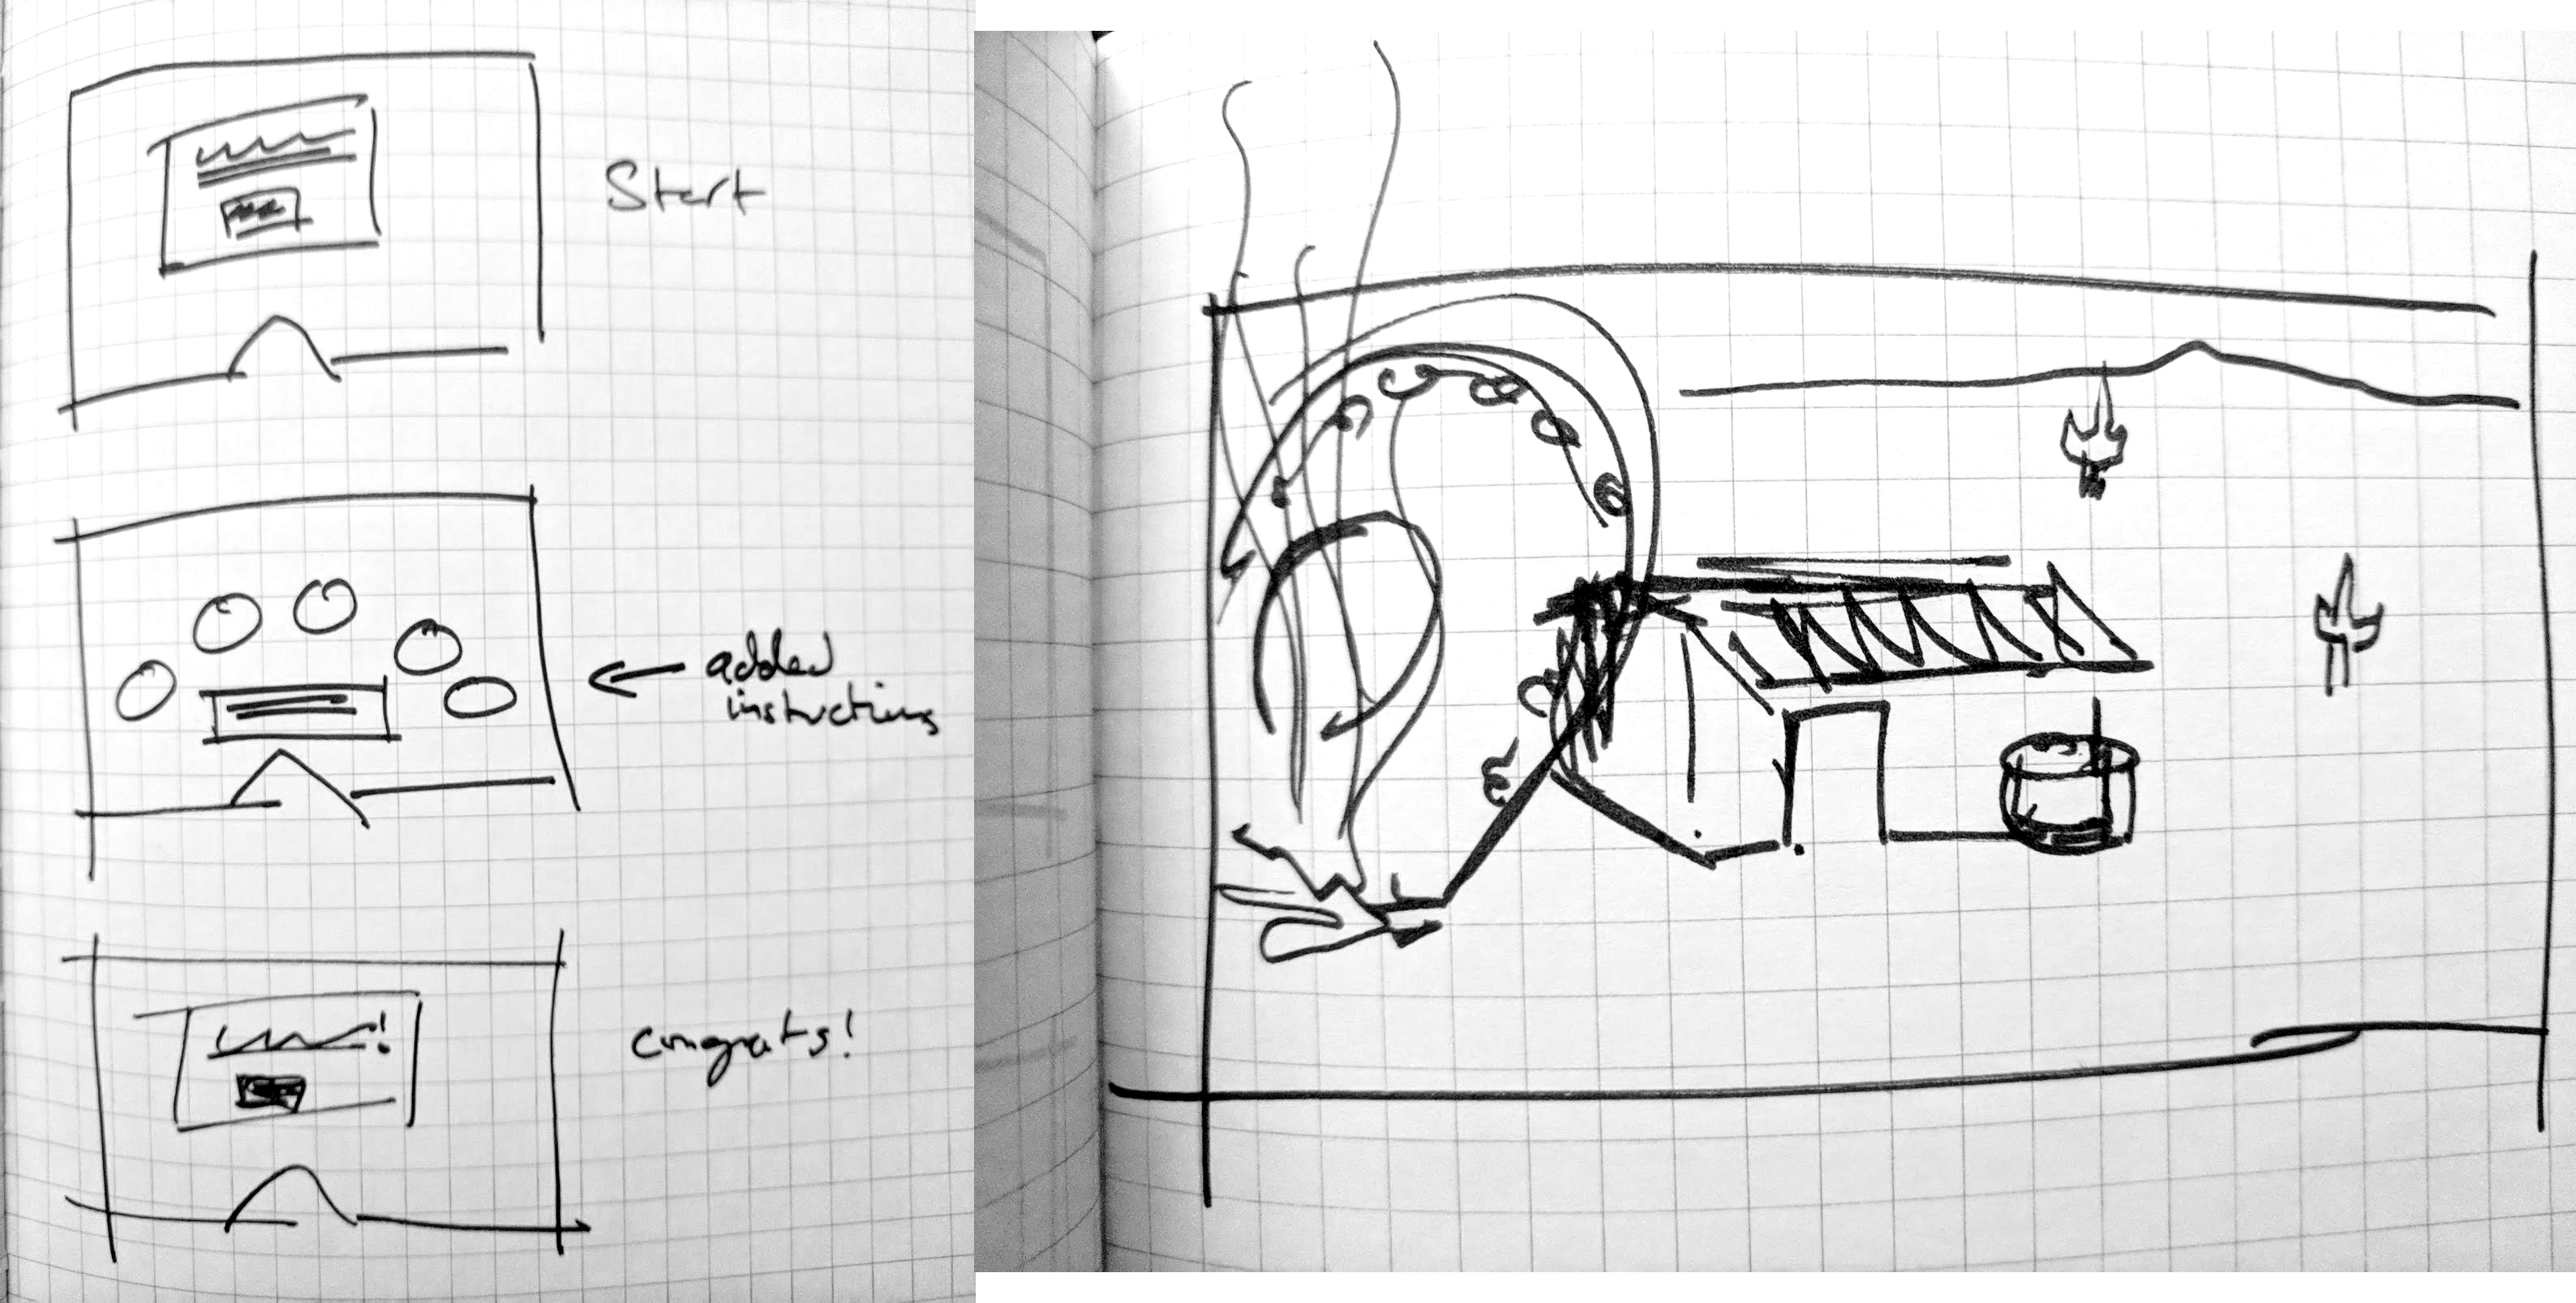 Start
added
instructions
congrats!